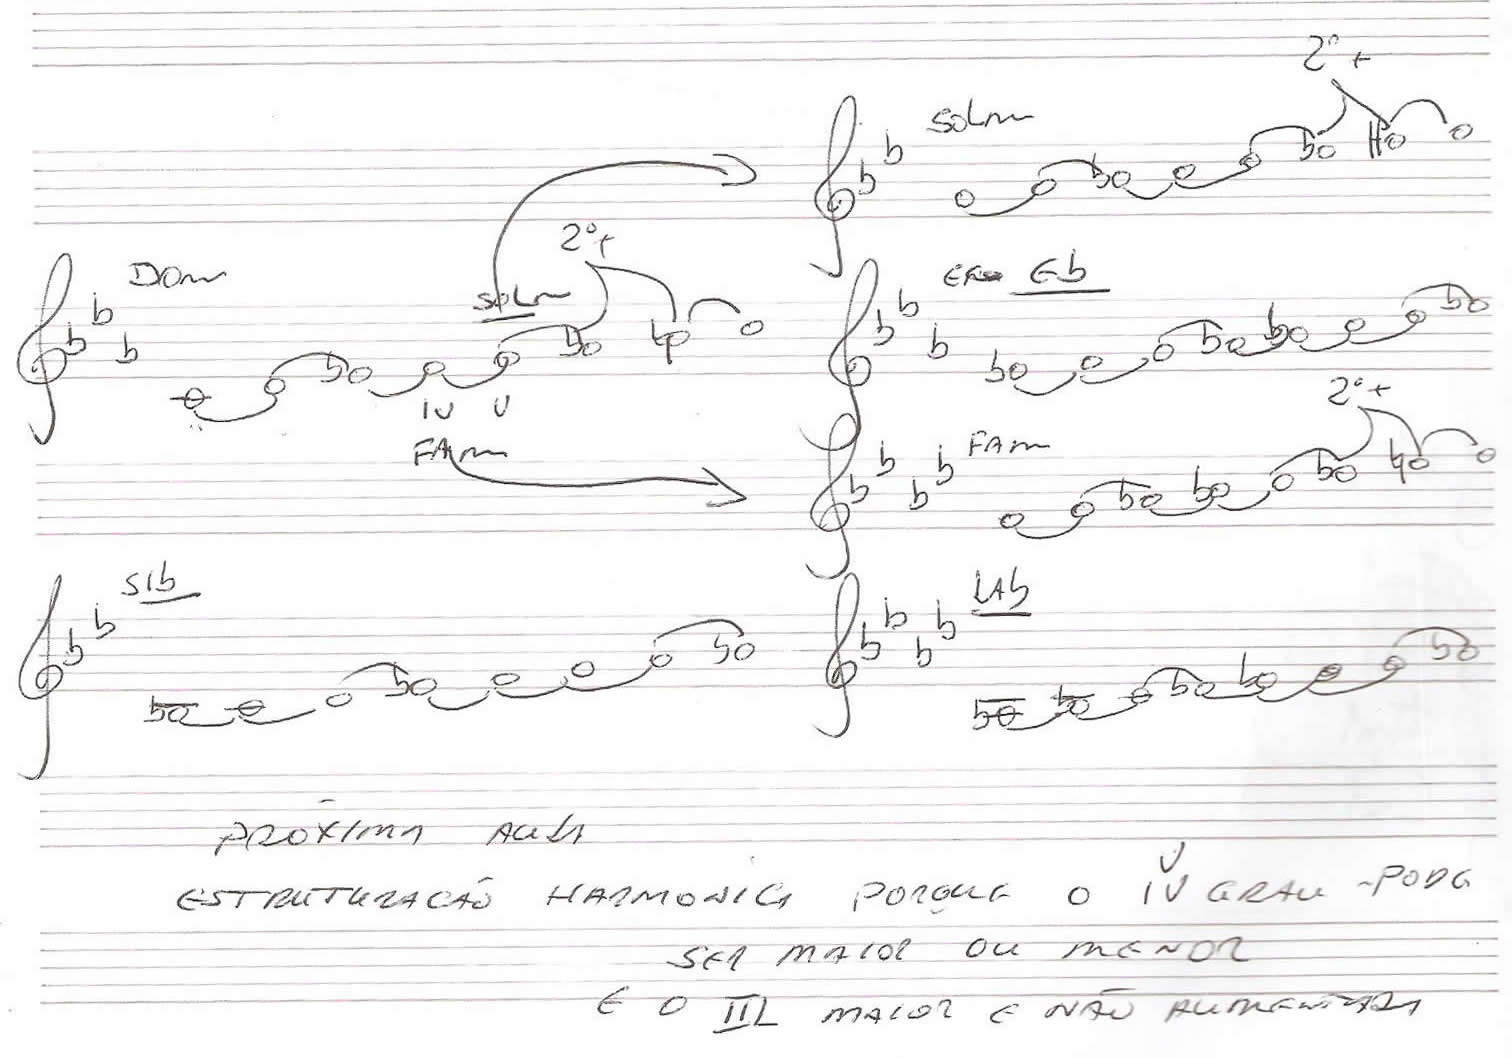 2º+
SOLm
DOm
SOLm
2º+
Eb
IV V
FAm
FAm
2º+
SIb
LAb
PRÓXIMA AULA
ESTRUTURAÇÃO HARMONICA PORQUE O IV GRAU PODE
V
SER MAIOR OU MENOR
E O III MAIOR E NÃO AUMENTADA